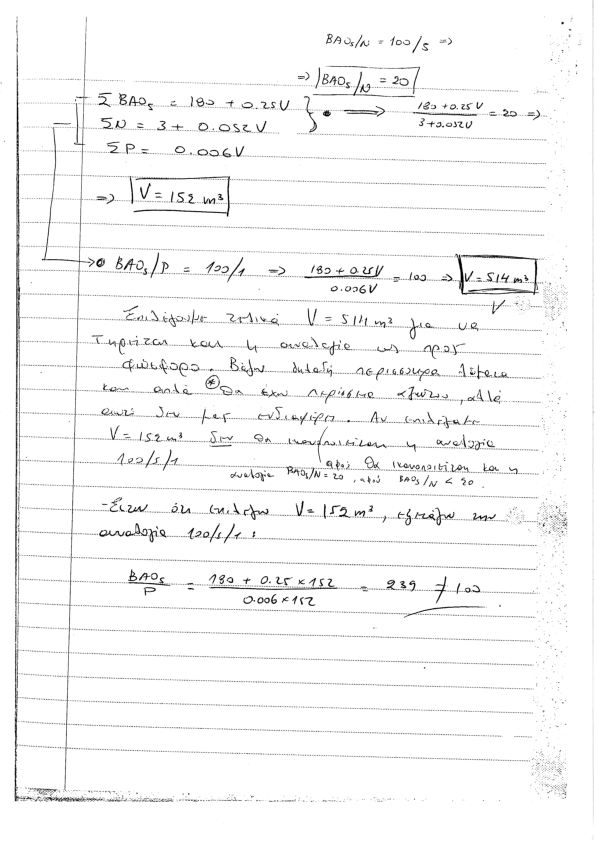 BAO₅/N = 100/5 =>
=> BAO₅/N = 20
Σ BAO₅ = 180 + 0.25V
ΣN = 3 + 0.052V
ΣP = 0.006V
=> (180 + 0.25V)/(3 + 0.052V) = 20 =>
=> V = 152 m³
BAO₅/P = 100/1 => (180 + 0.25V)/(0.006V) = 100 => V = 514 m³
Επιλέγουμε τελικά V = 514 m³ για να
Τηρείται και η αναλογία ως προς
φώσφορο. Βάζω δηλαδή περισσότερα λύματα
και απλά (*) θα έχω περίσσεια αζώτου, αλλά
αυτό δεν μας ενδιαφέρει. Αν επιλέξατε
V = 152 m³ δεν θα ικανοποιείται η αναλογία
100/5/1
αφού θα ικανοποιείται και η
αναλογία BAO₅/N = 20, αφού BAO₅/N < 20.
- Έστω ότι επιλέγω V = 152 m³, εξετάζω την
αναλογία 100/5/1 :
BAO₅/P = (180 + 0.25 × 152)/(0.006 × 152) = 239 ≠ 100